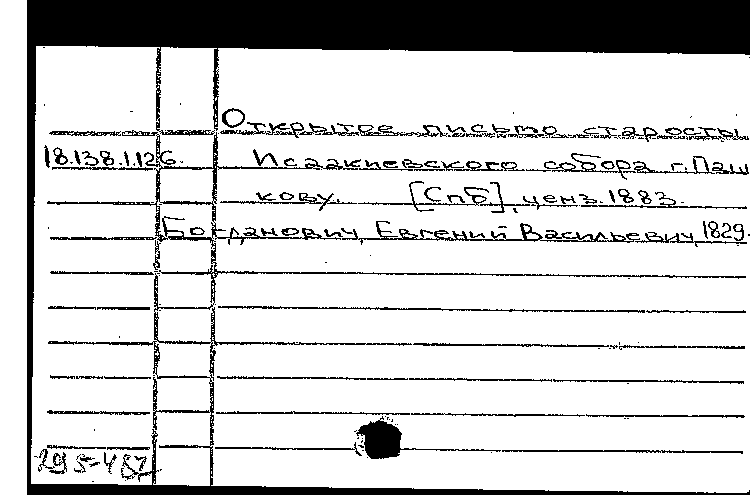 Открытое письмо старосты
18.138.1.126. Исаакиевского собора г. Паш
кову. [Спб], ценз. 1883.
Богданович, Евгений Васильевич, 1829-
295-487